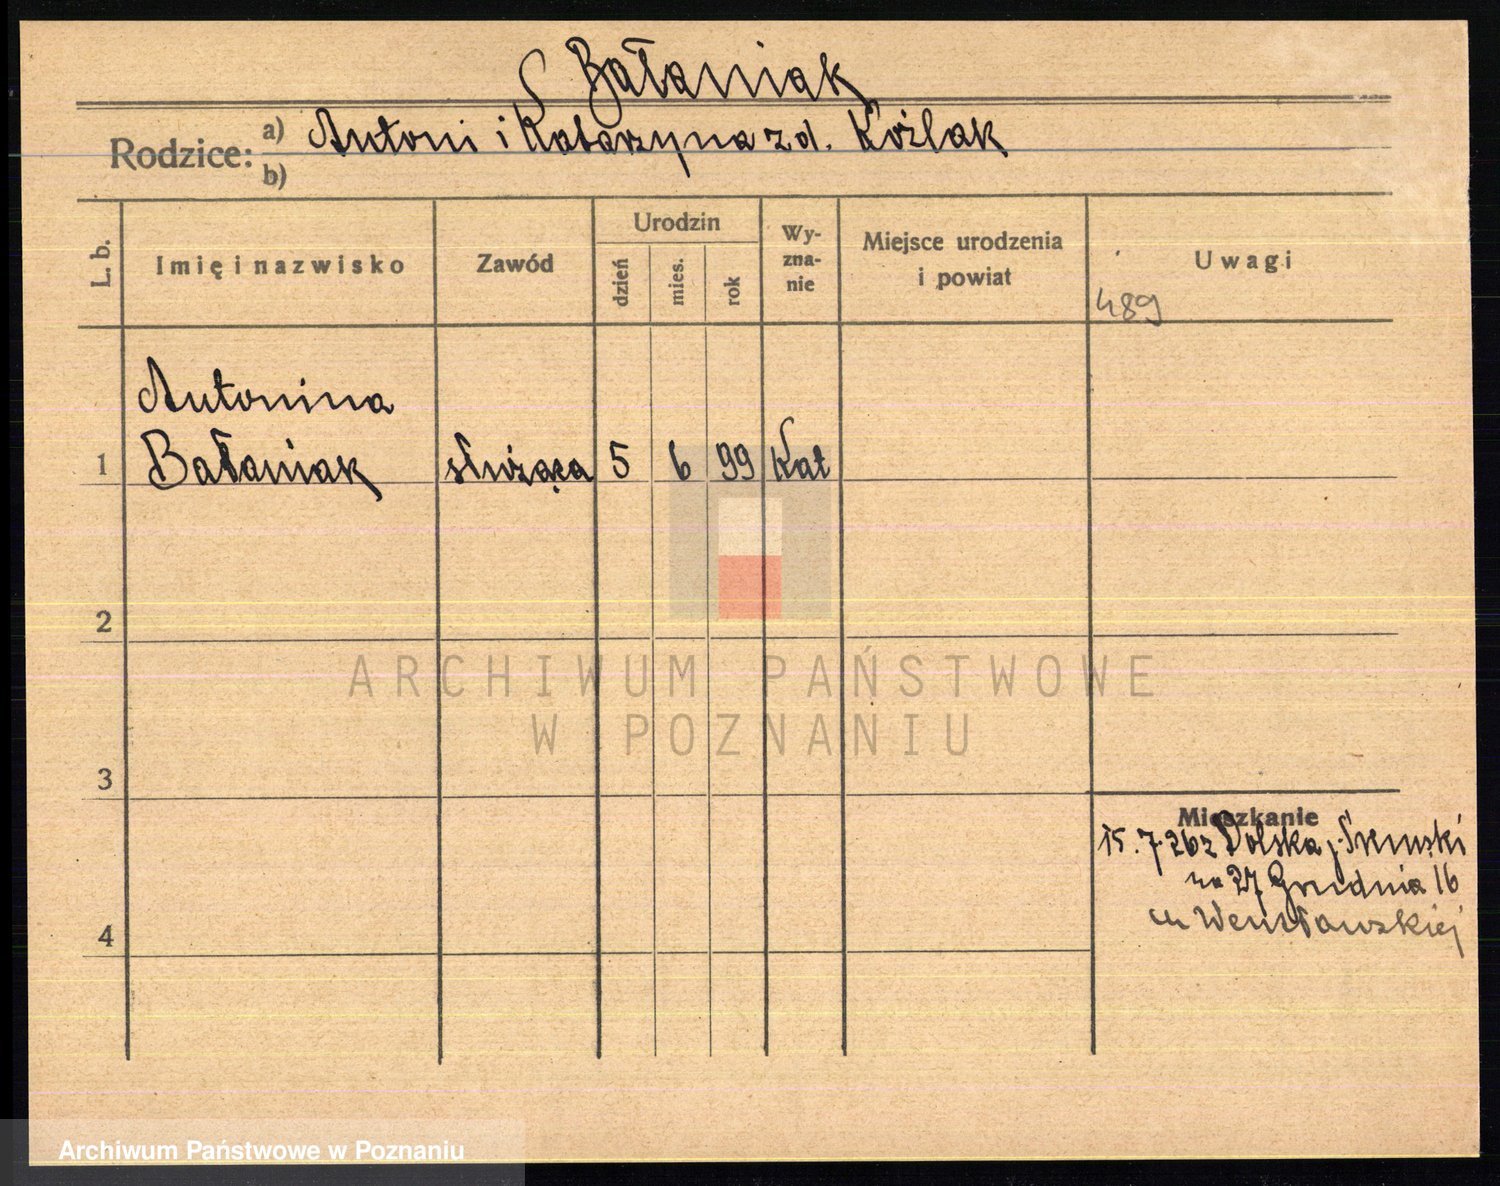 Bałaniak
Rodzice: a) Antoni i Katarzyna z d. Koźlak
b)
L. b. Imię i nazwisko Zawód Urodzin dzień mies. rok Wy-zna-nie Miejsce urodzenia i powiat Uwagi
489
Antonina
1 Bałaniak służąca 5 6 99 Kat
2
ARCHIWUM PAŃSTWOWE
W POZNANIU
3
Mieszkanie
15.7.26 z Polska p. Śremski
na 27 Grudnia 16
4
Archiwum Państwowe w Poznaniu